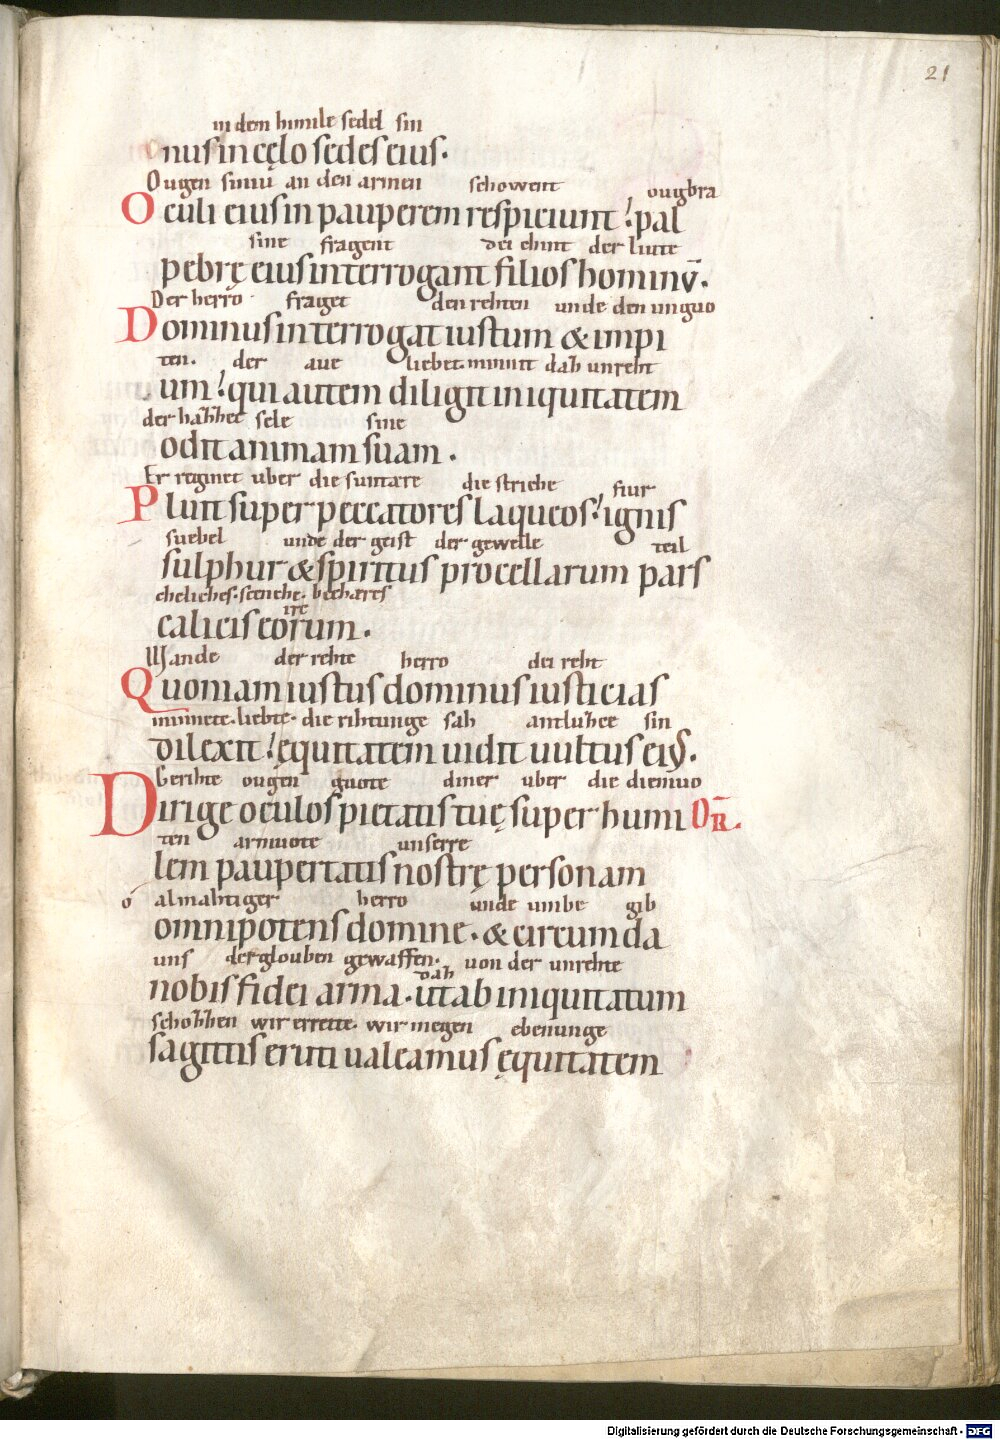 21
in dem himile sedel sin
nus in cęlo sedes eius.
Ougen siniu an den armen schowent ougbra
Oculi eius in pauperem respiciunt; pal
sine fragent dei chint der liute
pebrę eius interrogant filios hominū.
Der herro fraget den rehten unde den unguo
Dominus interrogat iustum & impi
ten. der aue liebet. minnit dah unreht
um; qui autem diligit iniquitatem
der hahhet sele sine
odit animam suam.
Er reginet uber die suntare die striche fiur
Pluit super peccatores laqueos; ignis
suebel unde der geist der gewelle teil
sulphur & spiritus procellarum pars
cheliches. scenche. bechares
ire
calicis eorum.
Wande der rehte herro dei reht
Quoniam iustus dominus iusticias
minnete. liebte. die rihtunge sah antluhee sin
dilexit; equitatem uidit uultus eiꝰ.
Gerihte ougen guote diner uber die diemuo
Dirige oculos pietatis tuę super humi OR̄.
ten armuote unserre
lem paupertatis nostrę personam
ó almahtiger herro unde umbe gib
omnipotens domine. & circumda
uns des glouben gewaffen. dah uon der unrehte
nobis fidei arma. ut ab iniquitatum
schohhen wir errette. wir megen ebenunge
sagittis eruti ualeamus ęquitatem
Digitalisierung gefördert durch die Deutsche Forschungsgemeinschaft - DFG